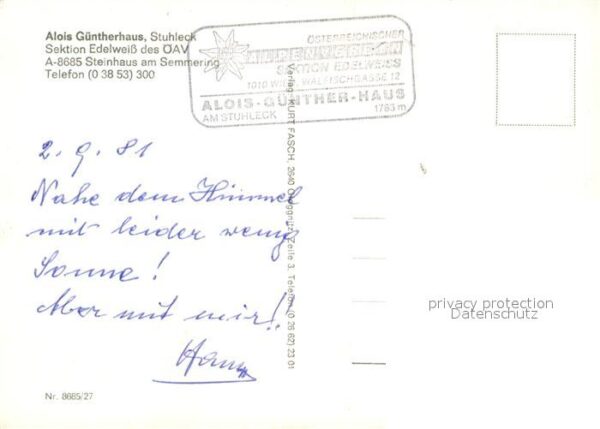 Alois Güntherhaus, Stuhleck
Sektion Edelweiß des ÖAV
A-8685 Steinhaus am Semmering
Telefon (0 38 53) 300
ÖSTERREICHISCHER
ALPENVEREIN
SEKTION EDELWEISS
1010 WIEN, WALFISCHGASSE 12
ALOIS-GÜNTHER-HAUS
AM STUHLECK 1783 m
2. 9. 81
Nahe dem Himmel
mit leider wenig
Sonne!
Aber mit mir!!
Verlag KURT FASCH, 2640 Gloggnitz, Zeile 3, Telefon (0 26 62) 23 01
privacy protection
Datenschutz
Nr. 8685/27